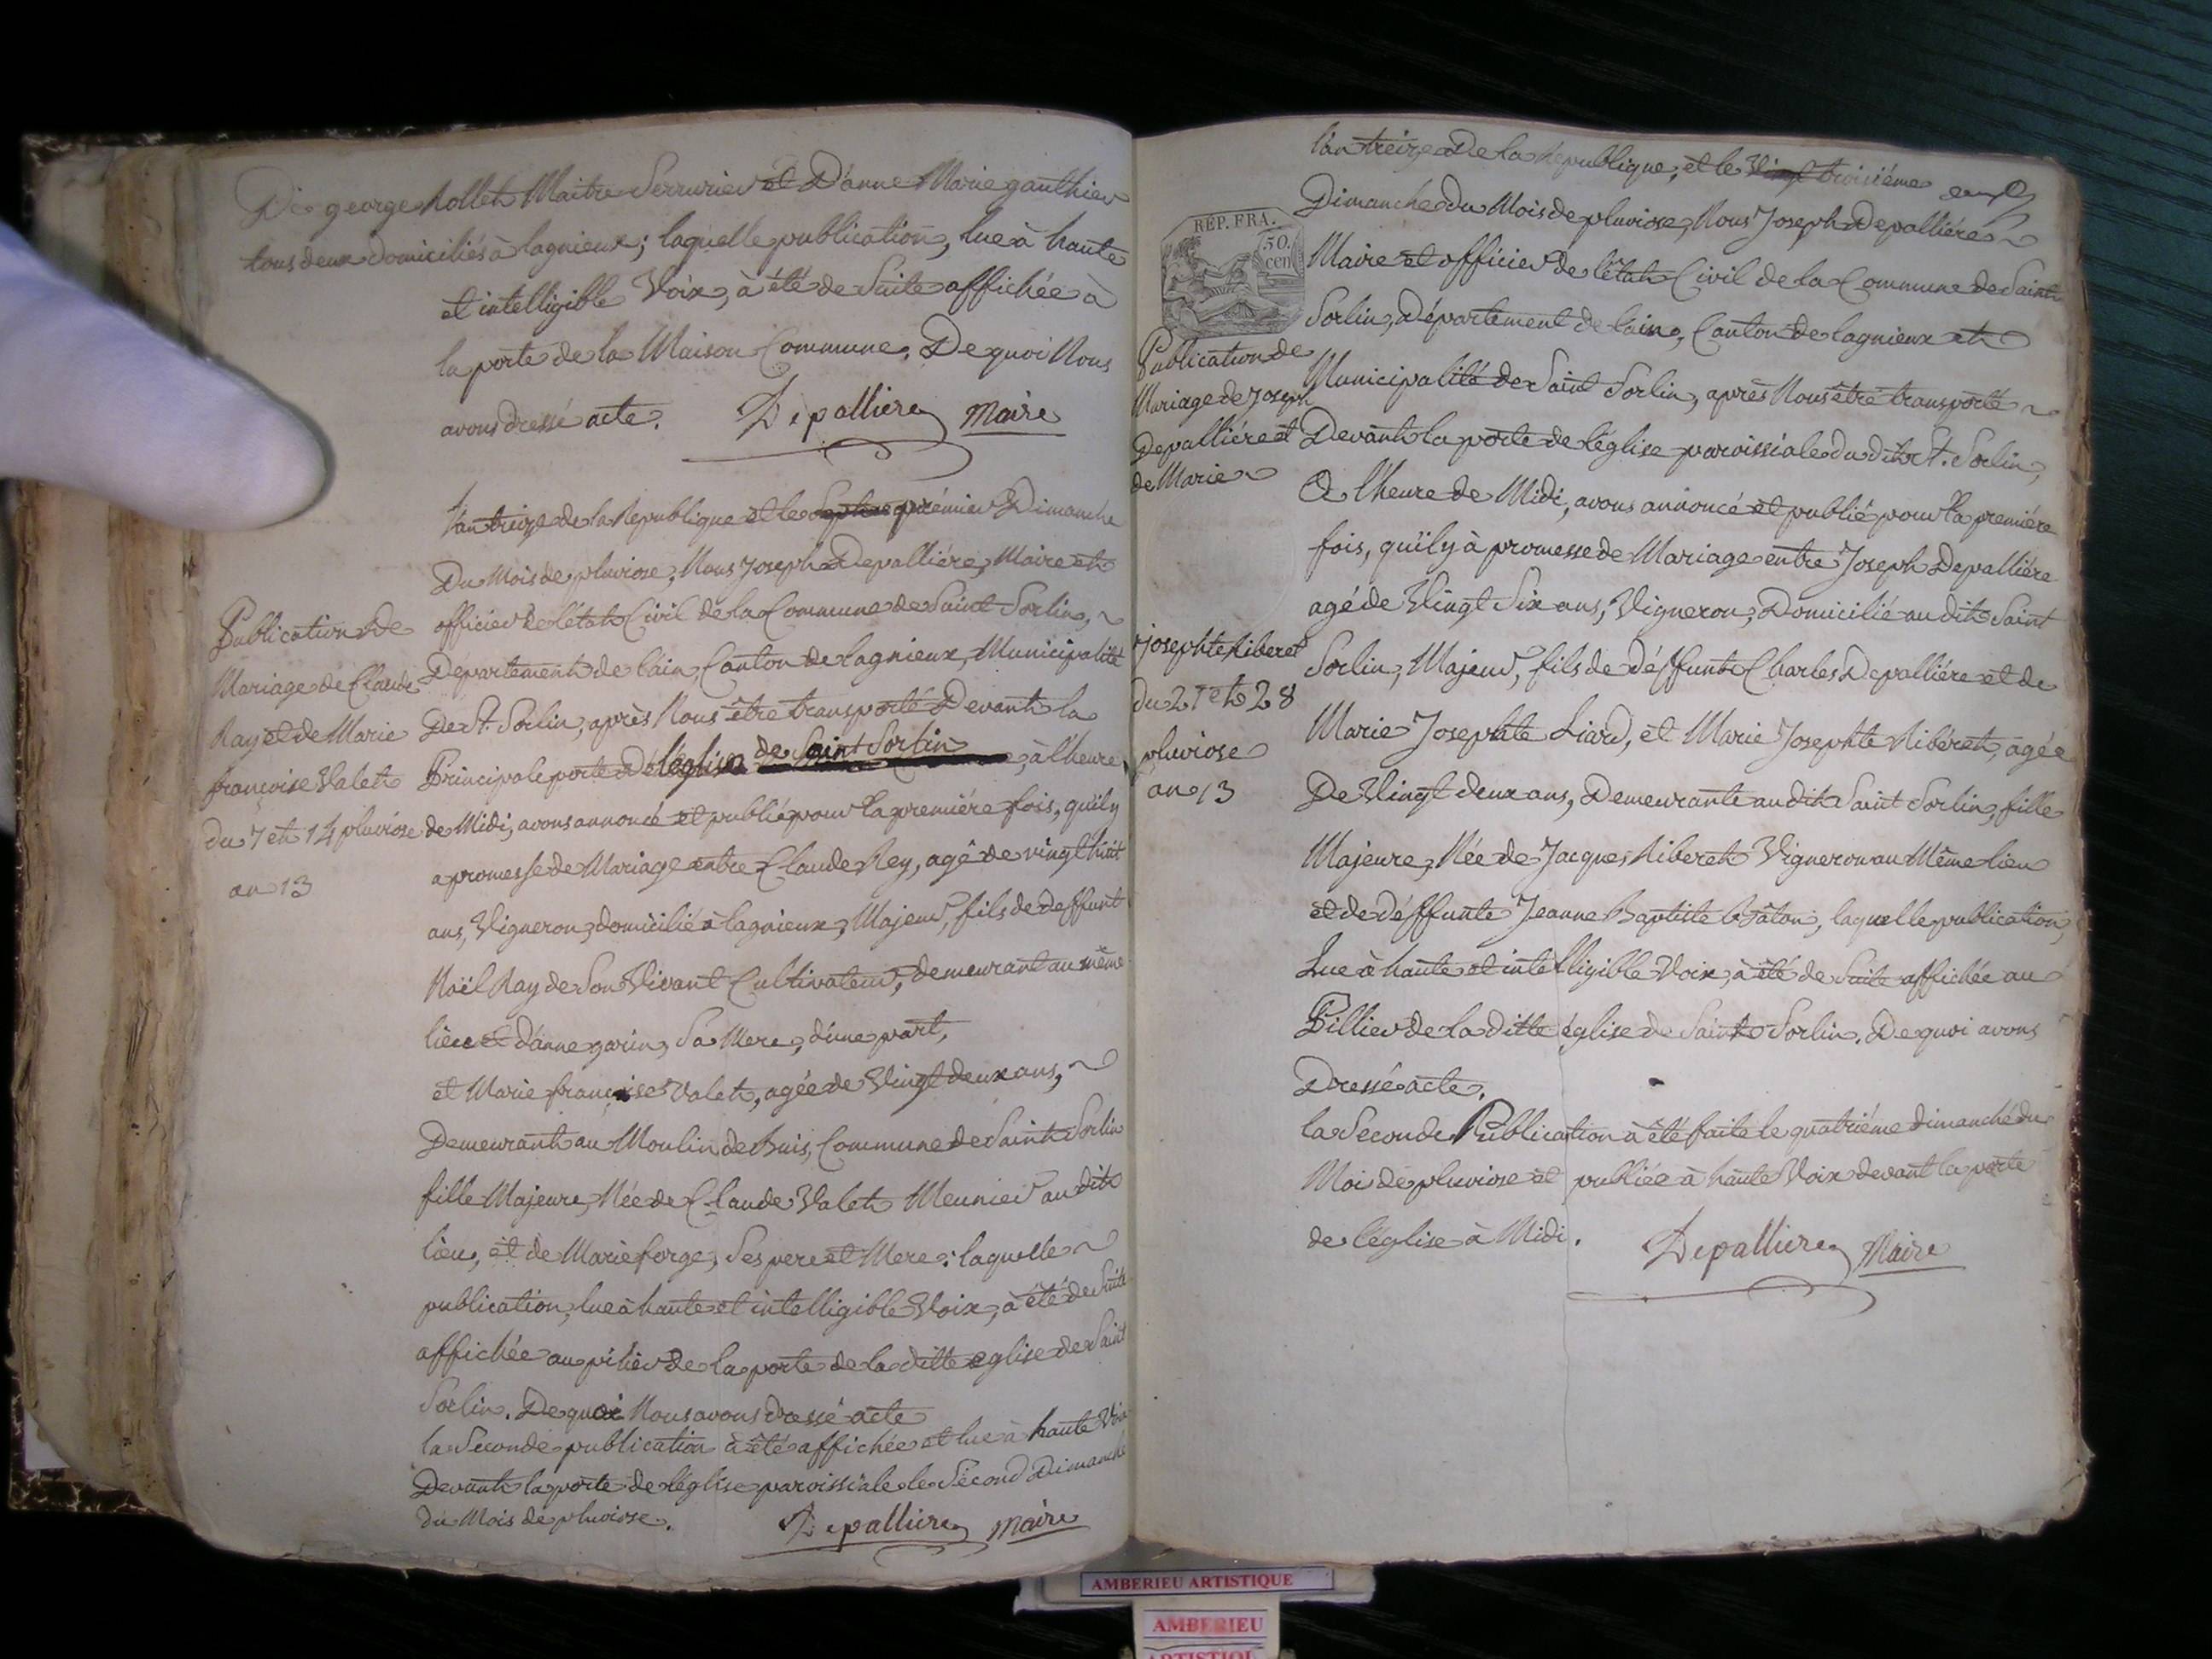 De george Rollet Maitre Serrurier et D'anne Marie gauthier
tous deux domiciliés à lagnieux; laquelle publication, lue à haute
et intelligible Voix, à été de Suite affichée à
la porte de la Maison Commune. De quoi Nous
avons dressé acte. Depalliere Maire
l'an treize de la Republique et le premier Dimanche
Du Mois de pluviose, Nous Joseph Depalliére, Maire et
officier de l'état Civil de la Commune de Saint Sorlin,
Département de l'ain, Canton de lagnieux, Municipalité
De St. Sorlin, après Nous être transporté Devant la
Principale porte de l'église de Saint Sorlin, à l'heure
de Midi, avons annoncé et publié pour la premiére fois, qu'il y
a promesse de Mariage entre Claude Rey, agé de vingt huit
ans, Vigneron, domicilié à lagnieux, Majeur, fils de deffunt
Noël Ray de Son Vivant Cultivateur, demeurant au même
lieu et d'anne garin, Sa Mere, d'une part,
et Marie françoise Valet, agée de Vingt deux ans,
Demeurant au Moulin de Buis, Commune de Saint Sorlin
fille Majeure, Née de Claude Valet Meunier au dit
lieu, et de Marie forge, Ses pere et Mere: laquelle
publication, lue à haute et intelligible Voix, à été de Suite
affichée au pilier de la porte de la ditte eglise de Saint
Sorlin. De quoi Nous avons dressé acte
la Seconde publication à été affichée et lue à haute Voix
Devant la porte de l'église paroissiale le Second Dimanche
du Mois de pluviose. Depalliere Maire
Publication de
Mariage de Claude
Ray et de Marie
françoise Valet
du 7 et 14 pluviose
an 13
l'an treize De la Republique, et le troisiéme
Dimanche du Mois de pluviose, Nous Joseph Depalliére
Maire et officier de l'état Civil de la Commune de Saint
Sorlin, Département de l'ain, Canton de lagnieux et
Municipalité de Saint Sorlin, après Nous être transporté
Devant la porte de l'église paroissiale du dit St. Sorlin,
à l'heure de Midi, avons annoncé et publié pour la premiére
fois, qu'il y à promesse de Mariage entre Joseph Depalliére
agé de Vingt Six ans, Vigneron, Domicilié au dit Saint
Sorlin, Majeur, fils de déffunt Charles Depalliére et de
Marie Josephte Liard, et Marie Josephte Ribéret, agée
De Vingt deux ans, Demeurante au dit Saint Sorlin, fille
Majeure, Née de Jacques Riberet Vigneron au Même lieu
et de déffunte Jeanne Baptiste Bâton, laquelle publication,
Lue à haute et intelligible Voix, à été de Suite affichée au
Pillier de la ditte église de Saint Sorlin. De quoi avons
Dressé acte.
la Seconde Publication à été faite le quatriéme dimanche du
Moi de pluviose et publiée à haute Voix devant la porte
de l'église à Midi. Depalliere Maire
RÉP. FRA.
50.
cen
Publication de
Mariage de Joseph
Depalliére et
de Marie
josephte Riberet
du 21 et 28
pluviose
an 13
AMBERIEU ARTISTIQUE
AMBERIEU
ARTISTIQUE